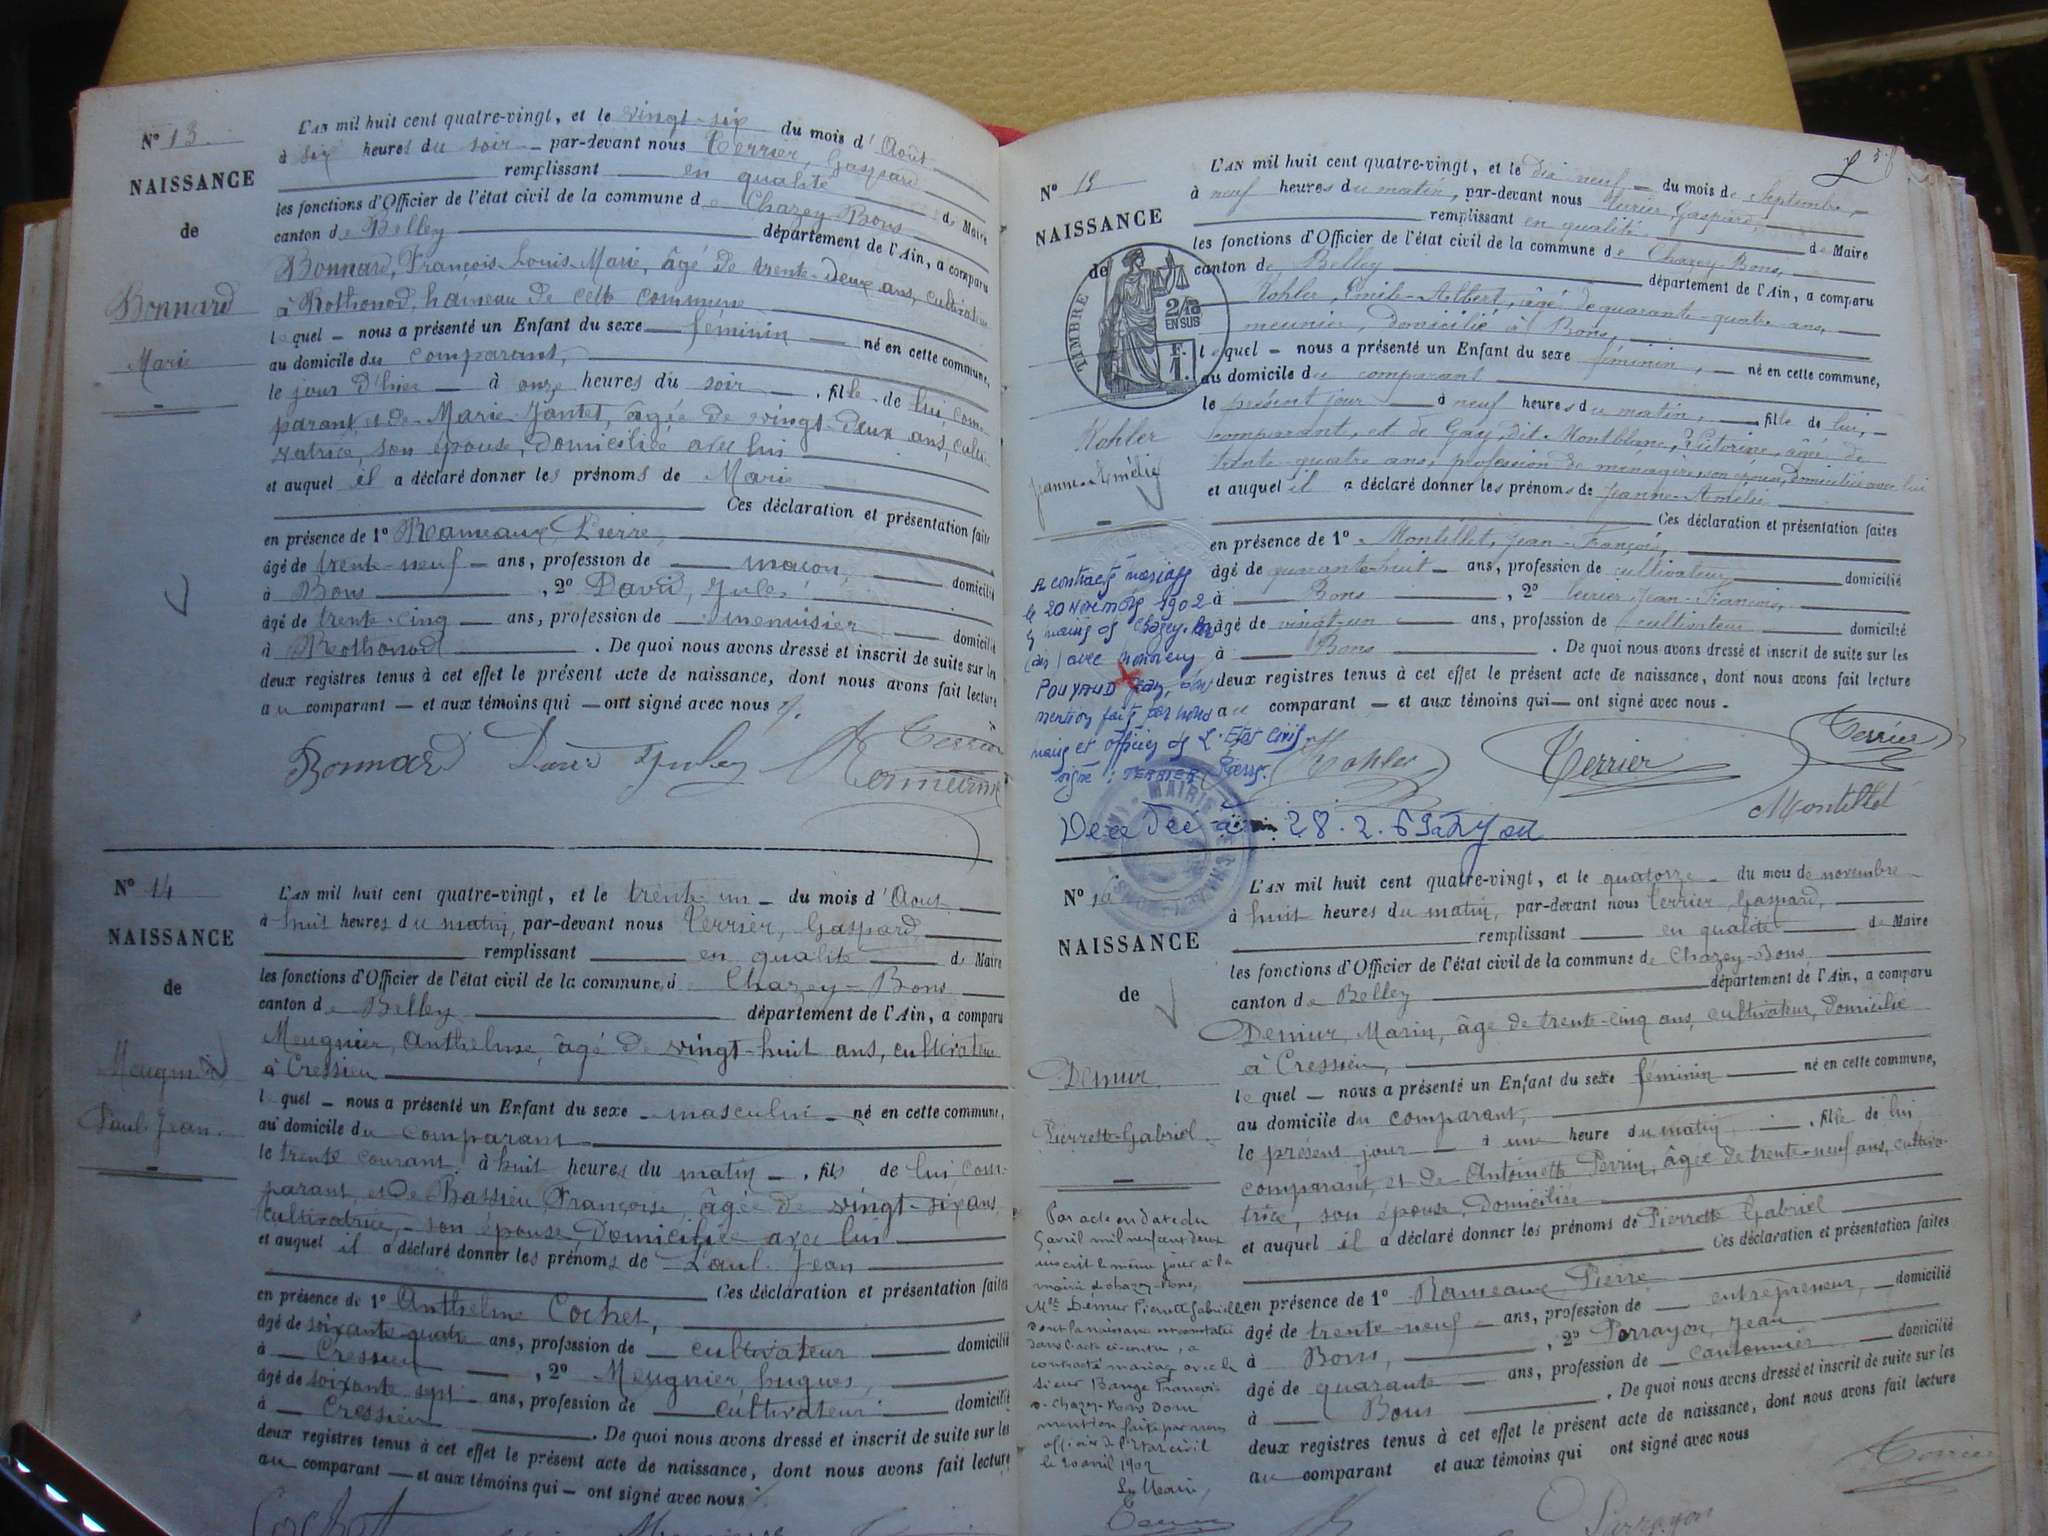 N° 13
NAISSANCE
de
Bonnard
Marie
L'AN mil huit cent quatre-vingt, et le vingt-six du mois d'Août
à six heures du soir par-devant nous Terrier, Gaspard
remplissant en qualité de Maire
les fonctions d'Officier de l'état civil de la commune de Chazey-Bons
canton de Belley département de l'Ain, a comparu
Bonnard, François-Louis-Marie, âgé de trente-deux ans, cultivateur
à Rothonod, hameau de cette commune
lequel nous a présenté un Enfant du sexe féminin né en cette commune,
au domicile du comparant,
le jour d'hier à onze heures du soir, fille de lui com-
parant, et de Marie Jantet, âgée de vingt-deux ans, culti-
vatrice, son épouse, domiciliée avec lui
et auquel il a déclaré donner les prénoms de Marie
Ces déclaration et présentation faites
en présence de 1° Rameaux, Pierre,
âgé de trente-neuf ans, profession de maçon, domicilié
à Bons, 2° David, Jules
âgé de trente-cinq ans, profession de menuisier domicilié
à Rothonod. De quoi nous avons dressé et inscrit de suite sur les
deux registres tenus à cet effet le présent acte de naissance, dont nous avons fait lecture
au comparant et aux témoins qui ont signé avec nous
Bonnard David Jules Terrier
N° 14
NAISSANCE
de
Meugnier
Paul-Jean
L'AN mil huit cent quatre-vingt, et le trente-un du mois d'Août
à huit heures du matin, par-devant nous Terrier, Gaspard,
remplissant en qualité de Maire
les fonctions d'Officier de l'état civil de la commune de Chazey-Bons
canton de Belley département de l'Ain, a comparu
Meugnier, Anthelme, âgé de vingt-huit ans, cultivateur
à Cressieu
lequel nous a présenté un Enfant du sexe masculin né en cette commune,
au domicile du comparant
le trente courant à huit heures du matin, fils de lui, com-
parant, et de Chassieu, Françoise, âgée de vingt-six ans,
cultivatrice, son épouse, domiciliée avec lui
et auquel il a déclaré donner les prénoms de Paul-Jean
Ces déclaration et présentation faites
en présence de 1° Anthelme Cochet,
âgé de soixante-quatre ans, profession de cultivateur domicilié
à Cressieu, 2° Meugnier, hugues,
âgé de soixante-sept ans, profession de cultivateur domicilié
à Cressieu. De quoi nous avons dressé et inscrit de suite sur les
deux registres tenus à cet effet le présent acte de naissance, dont nous avons fait lecture
au comparant et aux témoins qui ont signé avec nous
Cochet
N° 15
NAISSANCE
de
TIMBRE
2/10
EN SUS
F.
1.
Kohler
Jeanne-Amélie
L'AN mil huit cent quatre-vingt, et le dix-neuf du mois de Septembre,
à neuf heures du matin, par-devant nous Terrier, Gaspard,
remplissant en qualité de Maire
les fonctions d'Officier de l'état civil de la commune de Chazey-Bons,
canton de Belley département de l'Ain, a comparu
Kohler, Emile-Albert, âgé de quarante-quatre ans,
meunier, domicilié à Bons,
lequel nous a présenté un Enfant du sexe féminin, né en cette commune,
au domicile du comparant
le présent jour à neuf heures du matin, fille de lui,
comparant, et de Gay, dit Montblanc, Victorine, âgée de
trente-quatre ans, profession de ménagère, son épouse, domiciliée avec lui
et auquel il a déclaré donner les prénoms de Jeanne-Amélie
Ces déclaration et présentation faites
en présence de 1° Montillet, Jean-François,
âgé de quarante-huit ans, profession de cultivateur domicilié
à Bons, 2° Terrier Jean-François,
âgé de vingt-un ans, profession de cultivateur domicilié
à Bons. De quoi nous avons dressé et inscrit de suite sur les
deux registres tenus à cet effet le présent acte de naissance, dont nous avons fait lecture
au comparant et aux témoins qui ont signé avec nous.
A contracté mariage
le 20 Novembre 1902
à mairie de Chazey-Bons
(Ain) avec Monsieur
POUYAUD Jean, dont
mention faite par nous
maire et officier de l'Etat Civil.
signé : TERRIER Pierre.
Kohler Terrier Terrier
Montillet
Décédée à 28.2.69 à Lyon
N° 16
NAISSANCE
de
Demur
Pierrette-Gabriel
L'AN mil huit cent quatre-vingt, et le quatorze du mois de novembre
à huit heures du matin, par-devant nous Terrier, Gaspard,
remplissant en qualité de Maire
les fonctions d'Officier de l'état civil de la commune de Chazey-Bons
canton de Belley département de l'Ain, a comparu
Demur, Marin, âgé de trente-cinq ans, cultivateur, domicilié
à Cressieu,
lequel nous a présenté un Enfant du sexe féminin né en cette commune,
au domicile du comparant,
le présent jour à une heure du matin, fille de lui
comparant, et de Antoinette Perrin, âgée de trente-neuf ans, cultiva-
trice, son épouse, domiciliée
et auquel il a déclaré donner les prénoms de Pierrette Gabriel
Ces déclaration et présentation faites
en présence de 1° Rameaux, Pierre
âgé de trente-neuf ans, profession de entrepreneur, domicilié
à Bons, 2° Perrayon, Jean
âgé de quarante ans, profession de cantonnier domicilié
à Bons. De quoi nous avons dressé et inscrit de suite sur les
deux registres tenus à cet effet le présent acte de naissance, dont nous avons fait lecture
au comparant et aux témoins qui ont signé avec nous
Par acte en date du
avril mil neuf cent deux
inscrit le même jour à la
mairie de chazey-Bons,
Mlle Demur Pierrette Gabrielle
dont la naissance est constatée
dans l'acte ci-contre, a
contracté mariage avec le
sieur Bange François
à Chazey-Bons Dont
mention faite par nous
officier de l'Etat civil
le 20 avril 1902
Le Maire,
Terrier
Perrayon